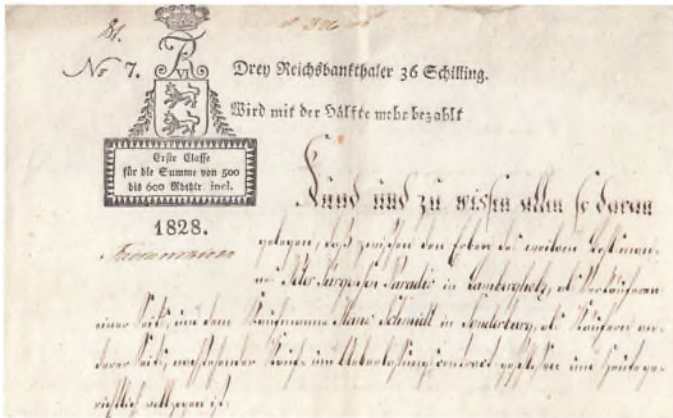 81.
No 7.
F
VI
Drey Reichsbankthaler 36 Schilling.
Wird mit der Hälfte mehr bezahlt
Erste Classe
für die Summe von 500
bis 600 Rbthlr. incl.
1828.
Kund und zu wissen allen so daran
gelegen, daß zwischen den Erben des weiland
Peter Jürgensen Paradies in als Verkäuferen
einer Seits, und dem Kaufmann Hans Schmidt in Sonderburg, als Käufern an-
derer Seits, nachstehender Kauf- und Ueberlassungscontract geschlossen und heute ge-
richtlich vollzogen ist: